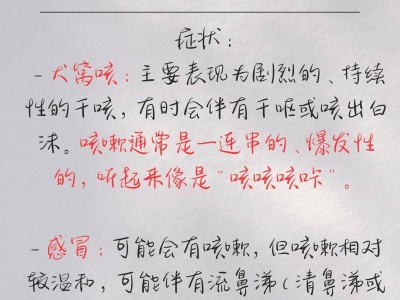 症状：
- 犬窝咳：主要表现为剧烈的、持续
性的干咳，有时会伴有干呕或咳出白
沫。咳嗽通常是一连串的、爆发性
的，听起来像是“咳咳咳咔”。
- 感冒：可能会有咳嗽，但咳嗽相对
较温和，可能伴有流鼻涕（清鼻涕或